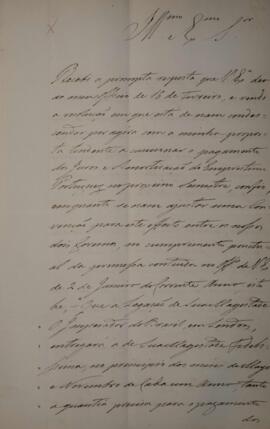 Illmo. Exmo. Snr.
Recebi a prompta resposta que V. Exa. deu
ao meu Officio de 18 de Fevreiro, e vendo
a resolução em que está de nam condes-
cender por agora com a minha propos-
ta tendente a o pagamento
dos Juros e Amortisação do Emprestimo
Portuguez no proximo Semestre,
emquanto se nam ajustar huma Con-
venção para este effeito entre os nossos
dois Governos, ou cumprimento pontu-
al da promessa contida no Off. de V. Exa.
de 2 de Janeiro do corrente Anno isto
he, que a Legação de Sua Magestade
O Imperador do Brasil, em Londres,
entregará a de Sua Magestade Fidelis-
sima, no principio dos mezes de Mayo
e Novembro de Cada hum Anno tanto
a quantia precisa para o pagamento
dos